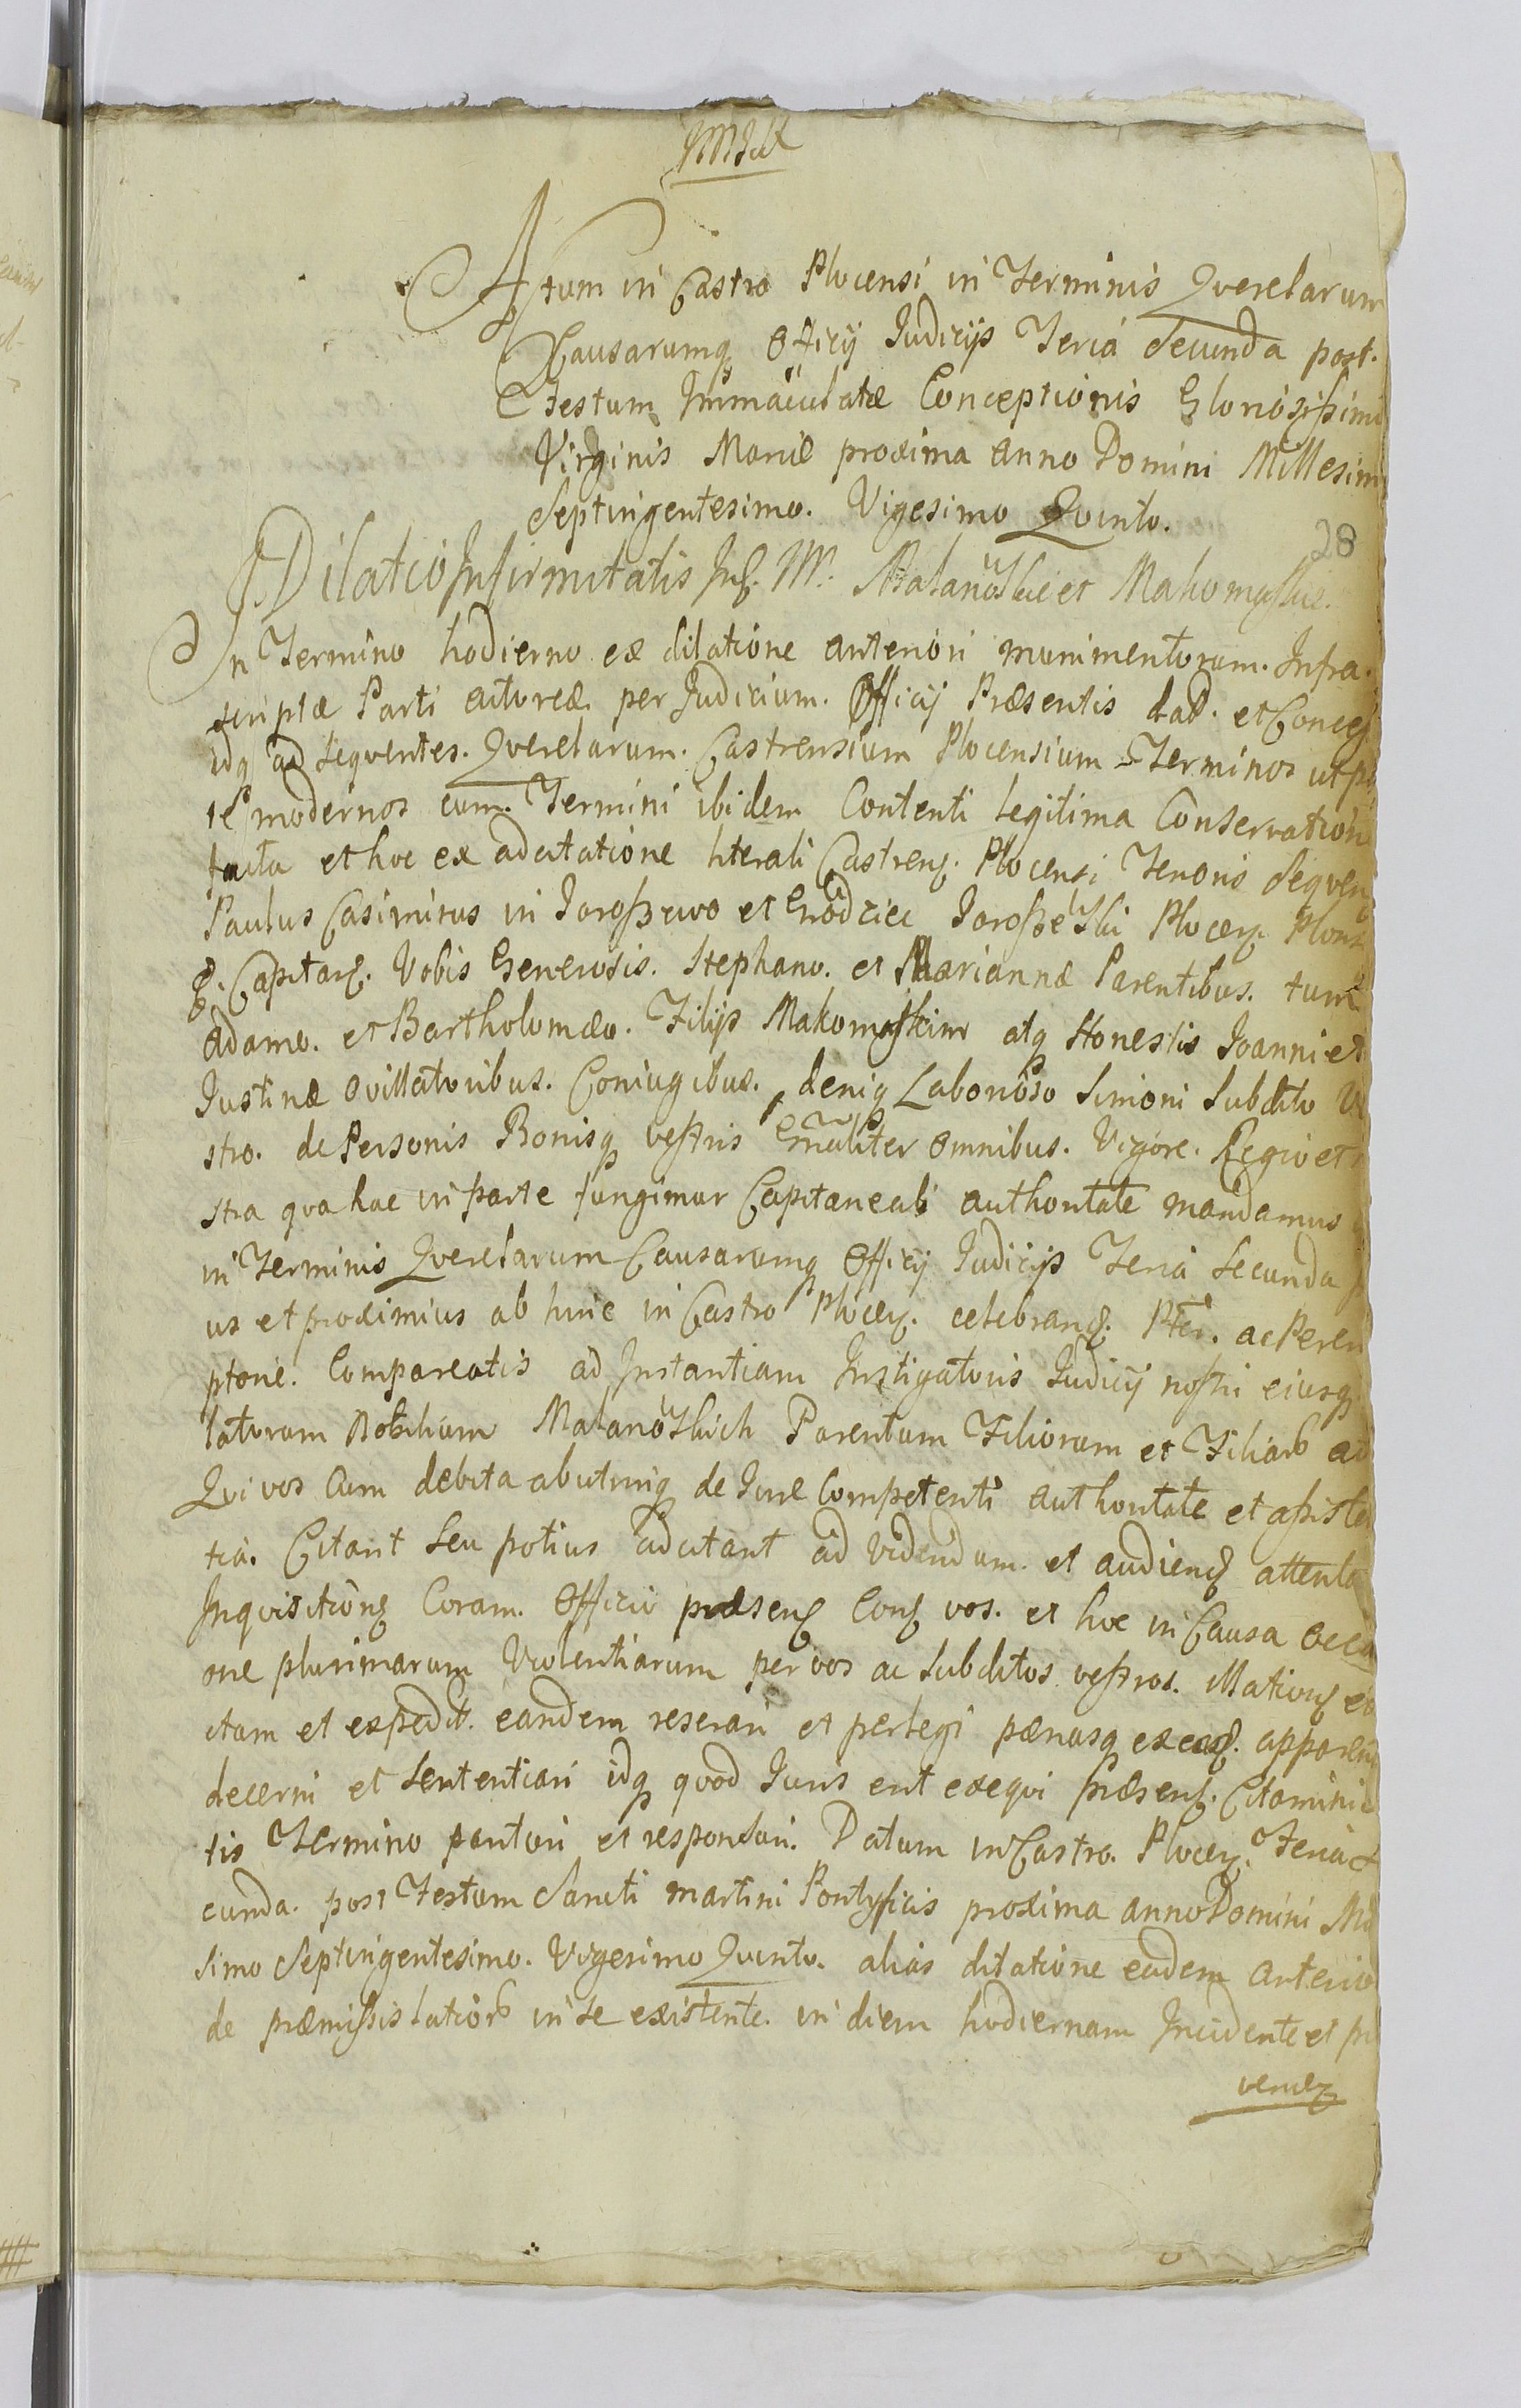 Actum in Castro Plocensi in Terminis Querelarum
Causarumq Officij Judicijs Feria Secunda post.
Festum Immaculatæ Conceptionis Gloriosissimæ
Virginis Mariæ proxima Anno Domini Millesim
Septingentesimo. Vigesimo Quinto.
28
Dilatio Infirmitatis Malanoskie et Makomaskie.
In Termino hodierno ex dilatione anteriori munimentorum. Infra
scriptæ Parti actoreæ per Judicium. Officij Præsentis dat. et Conces
idq ad sequentes. Querelarum. Castrensium Plocensium Terminos ut
modernos cum. Termini ibidem Contenti legitima Conservatione
facta et hoc ex adcitatione literali Castrens. Plocensi Tenoris Sequen
Paulus Casimirus in et Jaroszewski Plocen. Plons
g. Capitan. Vobis Generosis. Stephano. et Mariannæ Parentibus. tum
Adamo. et Bartholomæo. Filijs Makomaskim atq Honestis Joanni et
Justinæ Ovillatoribus. Coniugibus. deniq Laborioso Simoni Subdito Ve
stro. de Personis Bonisq vestris Gnaliter omnibus. Vigore. Regio et
stra qva hac in parte fungimur Capitaneali authoritate mandamus
in Terminis Querelarum Causarumq Officij Judicijs Feria Secunda
us et proximius ab hinc in Castro Plocen. celebran. Pter. ac Perem
ptorie. Compareatis ad Instantiam Instigatoris Judicij nostri eiusq
latorum Nobilium Malanoskich Parentum Filiorum et Filiarb
Qui vos Cum debita abutrinq de Jure Competenti authoritate et assisten
tia. Citant seu potius adcitant ad videndum. et audien attenta
Inquisition Coram. Officio præsen Con vos. et hoc in Causa occa
one plurimarum Violentiarum per vos ac Subditos vestros. illation
itam et expedit. eandem reserari et perlegi pænasq apparen
decerni et Sententiari idq quod Juris erit exequi præsen. Citamini
tis Termino parituri et responsuri. Datum in Castro. Plocen. Feria
cunda. post Festum Sancti Martini Pontificis proxima Anno Domini
simo Septingentesimo. Vigesimo Quinto. alias dilatione eadem anterio
de præmissis latiorb in se existente. in diem hodiernam Incidente et